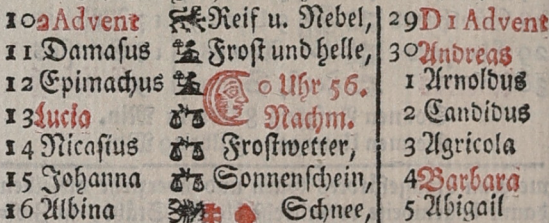 10 2 Advent Reif u. Nebel, 29 D 1 Advent
11 Damaſus Froſt und helle, 30 Andreas
12 Epimachus 0 Uhr 56. 1 Arnoldus
13 Lucia. Nachm. 2 Candidus
14 Nicaſius Froſtwetter, 3 Agricola
15 Johanna Sonnenſchein, 4 Barbara
16 Albina Schnee, 5 Abigail